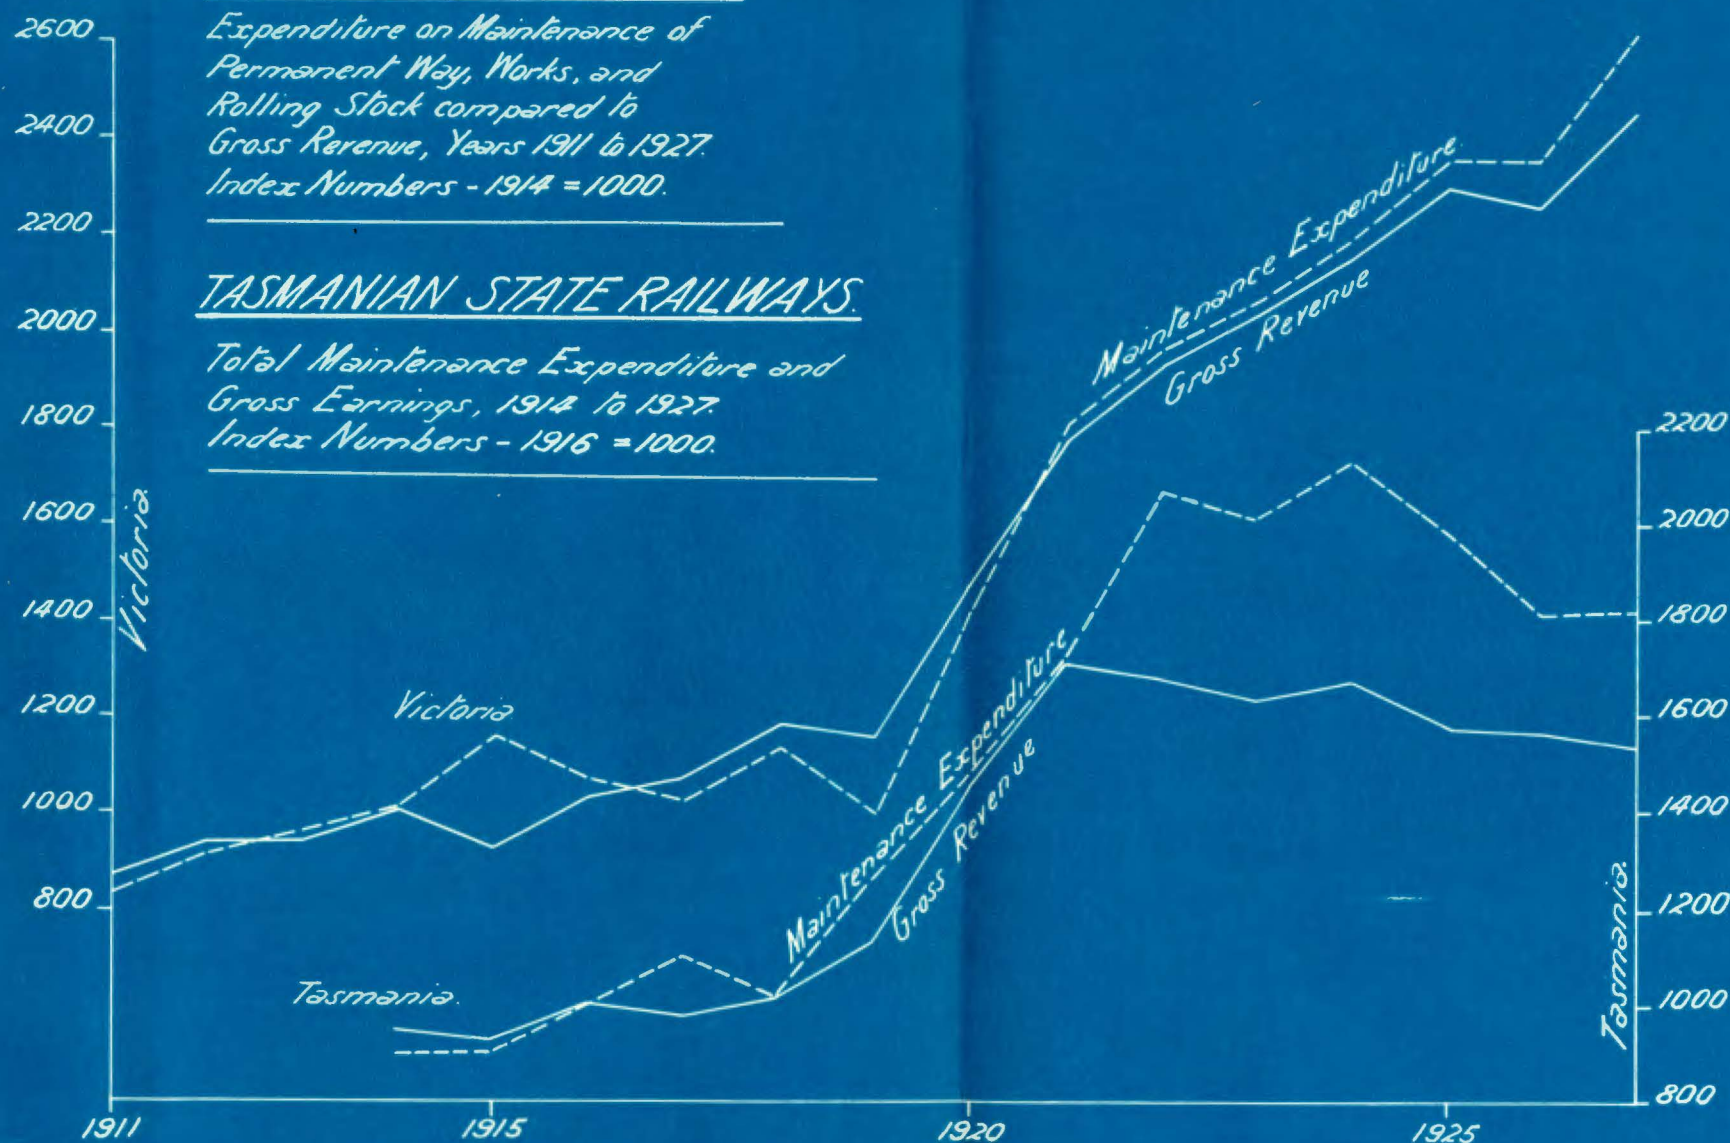 Expenditure on Maintenance of
Permanent Way, Works, and
Rolling Stock compared to
Gross Revenue, Years 1911 to 1927.
Index Numbers - 1914 = 1000.
TASMANIAN STATE RAILWAYS.
Total Maintenance Expenditure and
Gross Earnings, 1914 to 1927.
Index Numbers - 1916 = 1000.
2600
2400
2200
2000
1800
1600
1400
1200
1000
800
Victoria.
Victoria
Tasmania.
Maintenance Expenditure.
Gross Revenue
Maintenance Expenditure
Gross Revenue
2200
2000
1800
1600
1400
1200
1000
800
Tasmania.
1911
1915
1920
1925